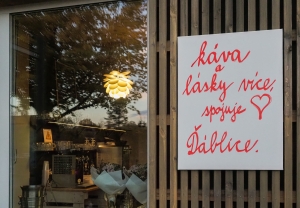 káva
a
lásky více,
spojuje ♡
Ďáblice.